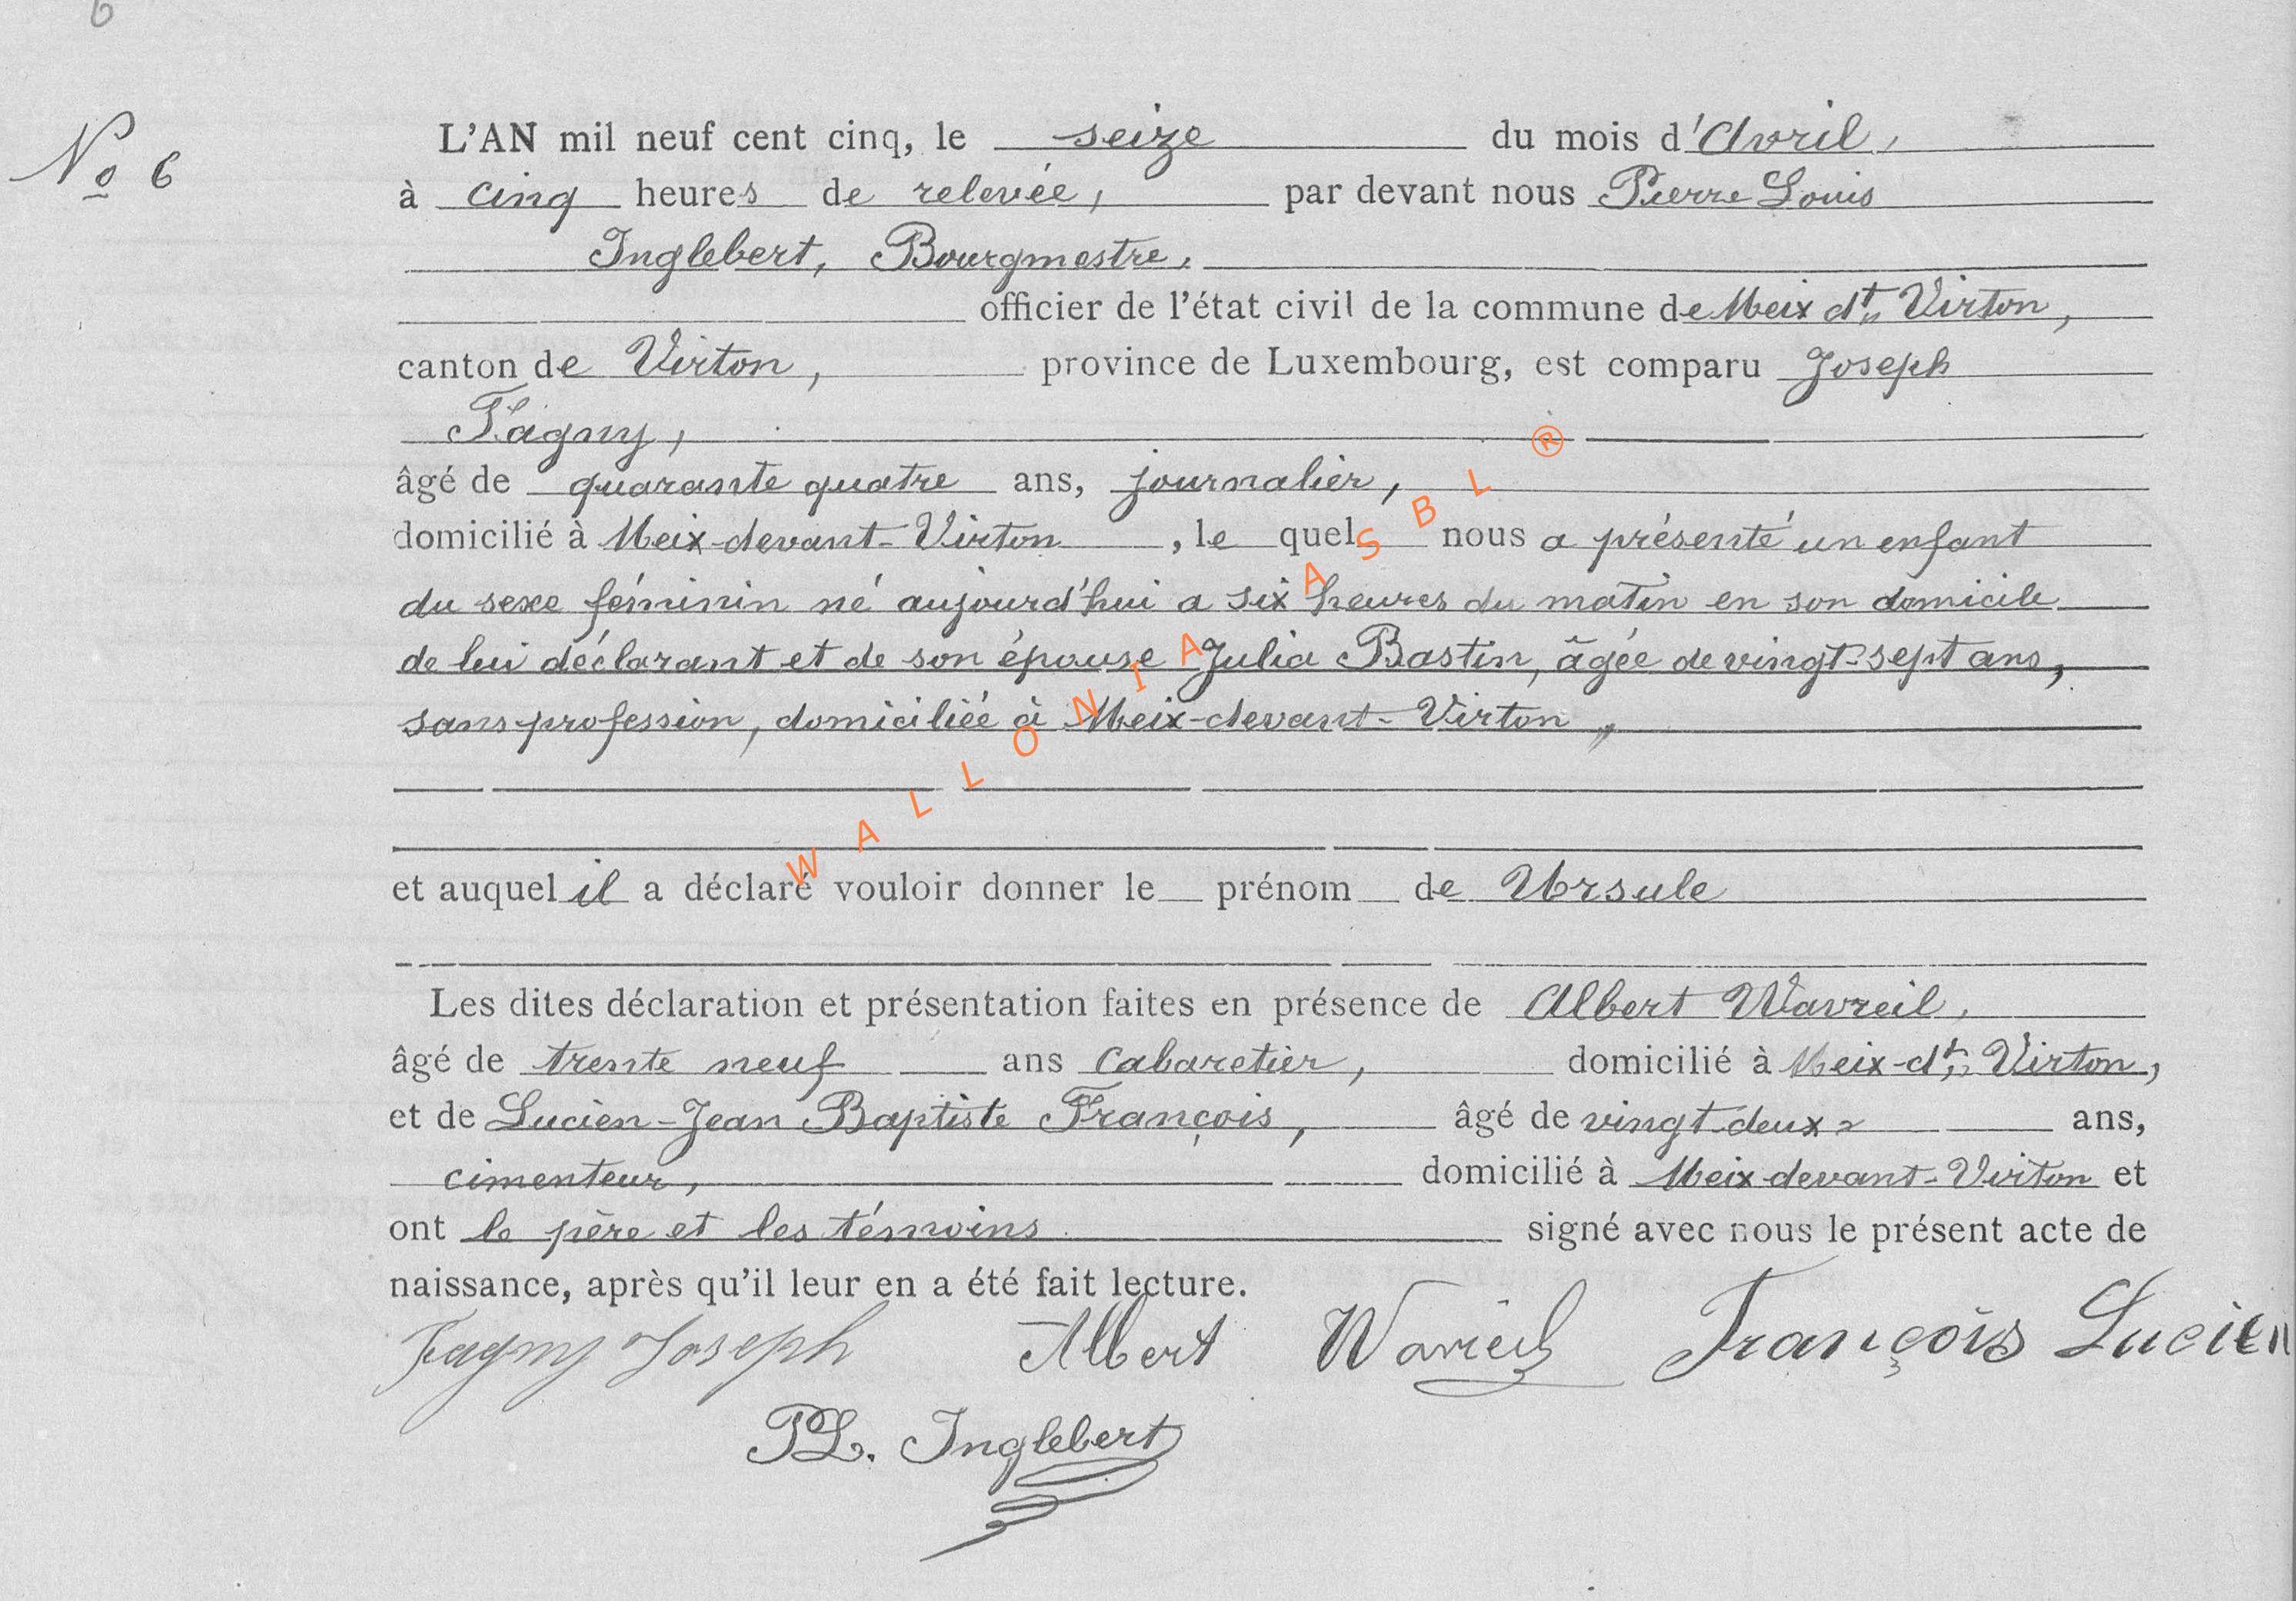 6
No 6
L'AN mil neuf cent cinq, le seize du mois d'Avril,
à cinq heures de relevée, par devant nous Pierre Louis
Inglebert, Bourgmestre,
officier de l'état civil de la commune de Meix dt Virton,
canton de Virton, province de Luxembourg, est comparu Joseph
Fagny,
âgé de quarante quatre ans, journalier,
domicilié à Meix-devant-Virton, le quel nous a présenté un enfant
du sexe féminin né aujourd'hui a six heures du matin en son domicile
de lui déclarant et de son épouse Julia Bastin, âgée de vingt-sept ans,
sans profession, domiciliée à Meix-devant-Virton,,
et auquel il a déclaré vouloir donner le prénom de Ursule
Les dites déclaration et présentation faites en présence de Albert Wavreil,
âgé de trente neuf ans cabaretier, domicilié à Meix-dt Virton,
et de Lucien-Jean Baptiste François, âgé de vingt-deux ans,
cimenteur, domicilié à Meix devant-Virton et
ont le père et les témoins signé avec nous le présent acte de
naissance, après qu'il leur en a été fait lecture.
Fagny Joseph Albert Wavreil François Lucien
PL. Inglebert
WALLONIA ASBL ®